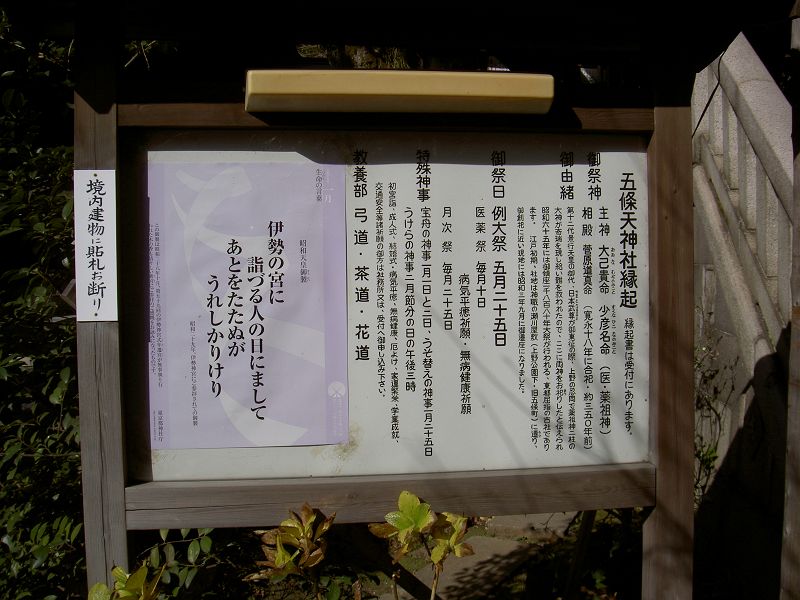 五條天神社縁起
縁起書は受付にあります。
御祭神
主神 大己貴命 少彦名命 (医・薬祖神)
相殿 菅原道真命 (寛永十八年に合祀・約三五〇年前)
御由緒
第十二代景行天皇の御代、日本武尊が御東征の際、上野の忍岡で薬祖神二柱の
大神が奇瑞を現し給い難を救われたので、ここに両神をお祀りしたと伝えられ
ます。江戸初期、社地は神職の瀬川屋敷(上野公園下・旧五條町)に遷り、
御創祀に近い現地には昭和三年九月に御遷座になりました。
御祭日
例大祭 五月二十五日
医薬祭 毎月十日
病気平癒祈願・無病健康祈願
月次祭 毎月二十五日
特殊神事
宝舟の神事一月二日と三日、うそ替えの神事一月二十五日
うけらの神事二月節分の日の午後三時
初宮詣・成人式・結婚式・病気平癒・無病健康・厄よけ・家運繁栄・学業成就、
交通安全等諸祈願の御方は社務所又は、受付へ御申し込み下さい。
教養部 弓道・茶道・花道
一月
生命の言葉
昭和天皇御製
伊勢の宮に
詣づる人の日にまして
あとをたたぬが
うれしかりけり
東京都神社庁
境内建物に貼札お断り